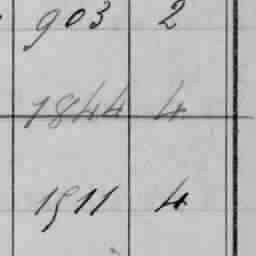 903 2
1844 4
1511 4